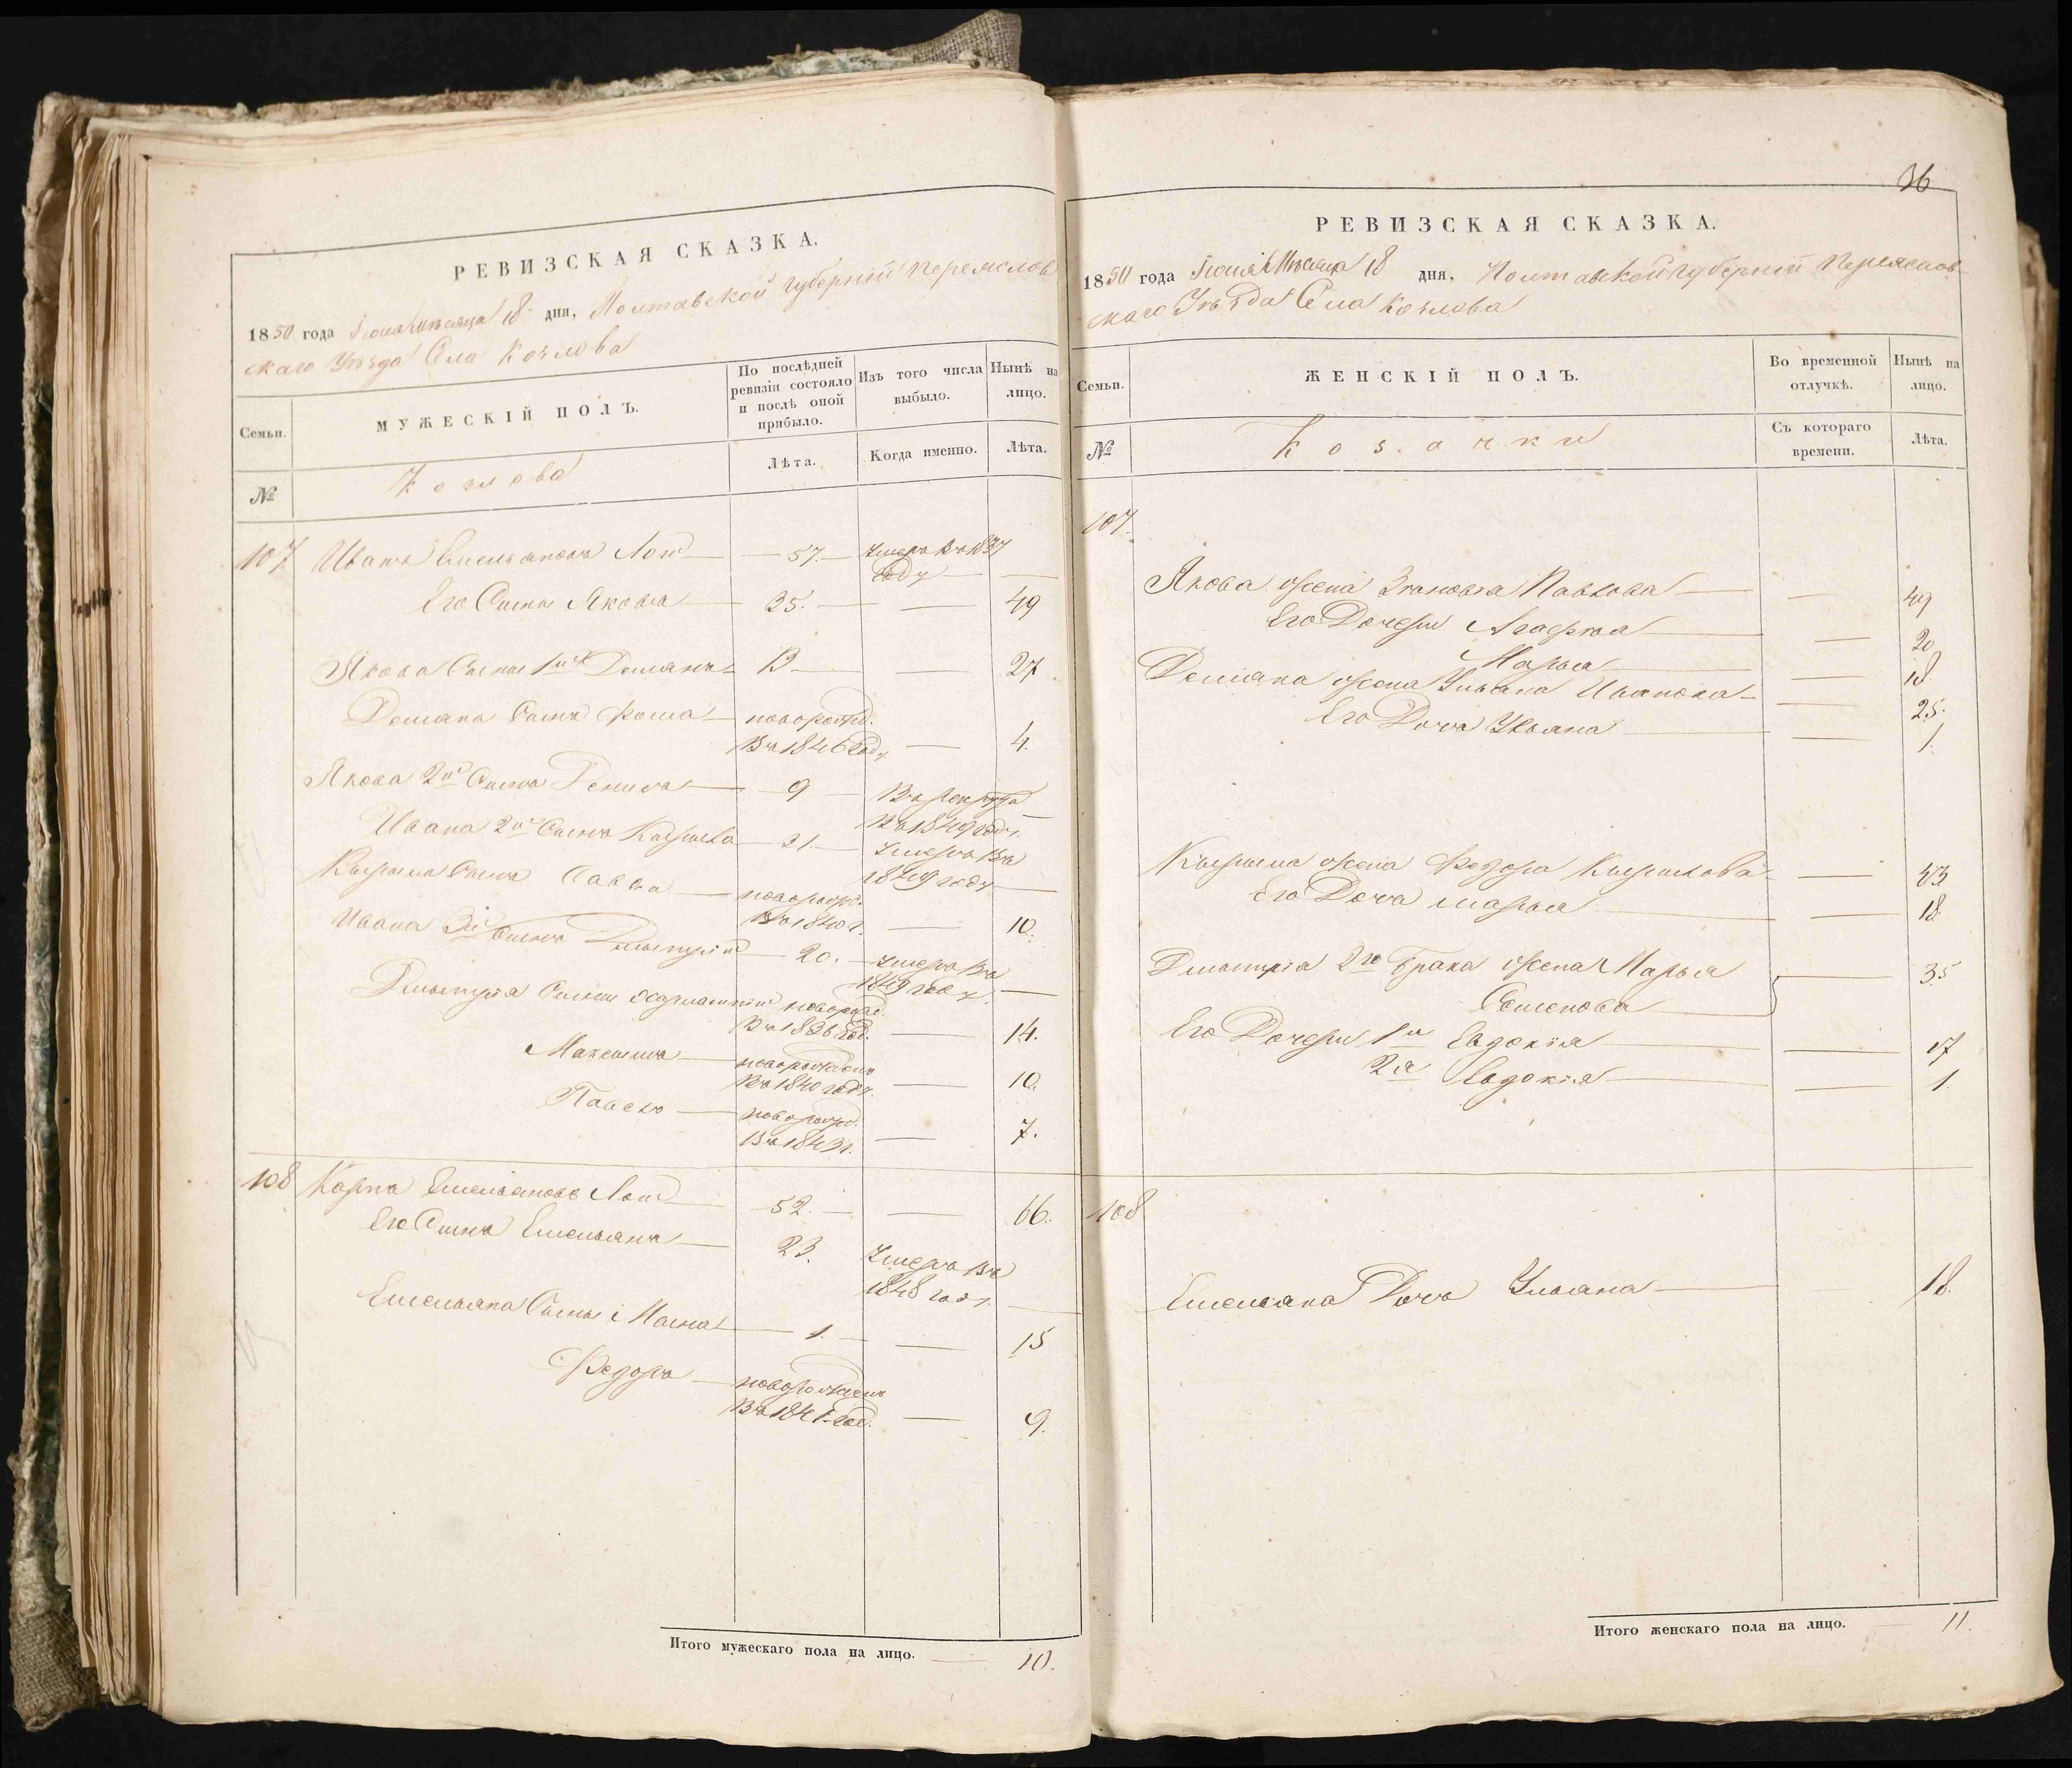 РЕВИЗСКАЯ СКАЗКА.
1850 года Іюня мѣсяца 18 дня, Полтавской губерніи Переяслов
скаго Уѣзда Села Козлова
Семьи.
МУЖЕСКІЙ ПОЛЪ.
По послѣдней ревизіи состояло и послѣ оной прибыло.
Изъ того числа выбыло.
Нынѣ на лицо.
№
Козлова
Лѣта.
Когда именно.
Лѣта.
107 Иванъ Емельяновъ 57. Умеръ въ 1837
году
Его Сынъ Яковъ 35. 49
Якова Сынъ 1й Демьянъ 13 27
Демяна Сынъ Фома новорожд.
въ 1846 году 4.
Якова 2й Сынъ Денисъ 9 в рекруты
в 1849 году.
Ивана 2й Сынъ 31. Умеръ въ
1849 году
Сынъ Савва новорожд.
въ 1840 г. 10.
Ивана 3й Сынъ Дмытрій 20. Умеръ въ
1849 году.
Дмытрія Сыны новорожд.
въ 1836 год. 14.
Максимъ новорожденъ
въ 1840 году. 10.
Павелъ новорожд.
въ 1843 г. 7.
108 Карпъ Емельяновъ 52. 66.
Его Сынъ Емельянъ 23. Умеръ въ
1848 году.
Емельяна Сыны 1. 15
Федоръ новорожденъ
въ 1841 год. 9.
Итого мужескаго пола на лицо. 10.
36
РЕВИЗСКАЯ СКАЗКА.
1850 года Іюня Мѣсяца 18 дня, Полтавской губерніи Переяслов
скаго Уѣзда Села Козлова
Семьи.
ЖЕНСКІЙ ПОЛЪ.
Во временной отлучкѣ.
Нынѣ на лицо.
№
Козачки
Съ котораго времени.
Лѣта.
107.
Якова жена Зѣновія Павлова 49
Его Дочери Агафья 20
Марья 18
Демяна жена Ульяна Иванова 25.
Его Дочь Ульяна 1.
жена Федора 43
Его Дочь марья 18
Дмытрія 2го брака жена Марья 35
Семенова
Его Дочери 1я Евдокія 17
2я Евдокія 1.
108
Емельяна Дочь Ульяна 18.
Итого женскаго пола на лицо. 11.